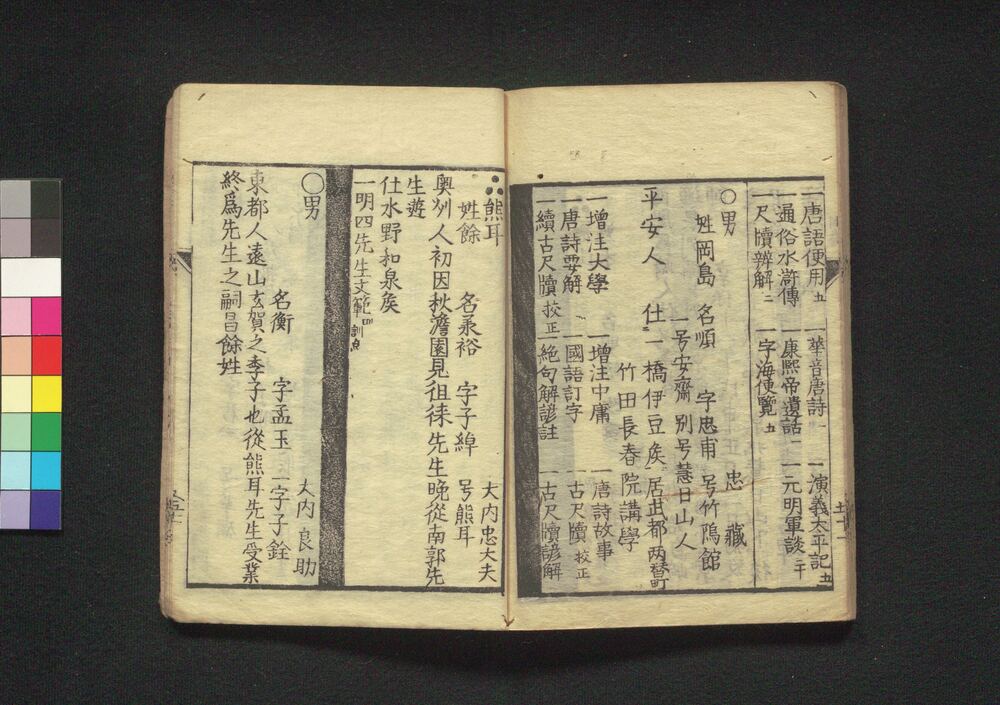 一唐語便用 五　一華音唐詩 一　一演義太平記 五
一通俗水滸傳　一康熙帝遺話 一　一元明軍談 二十
一尺牘辨解 二　一字海便覽 五
○男　忠藏
姓岡島　名順　字忠甫　号竹隝館
一号安齋　別号慧日山人
平安人　仕一橋伊豆矦　居武都両替町
竹田長春院講學
一增注大學　一增注中庸　一唐詩故事
一唐詩要解　一國語訂字　一古尺牘 校正
一續古尺牘 校正　一絶句解諺註　一古尺牘諺解
熊耳　大内忠大夫
姓餘　名承裕　字子綽　号熊耳
奥刕人初因秋澹園見徂徠先生晚從南郭先
生遊
仕水野和泉矦
一明四先生文範 四 訓点
○男　大内良助
名衡　字孟玉　一字子銓
東都人遠山玄賀之季子也從熊耳先生受業
終爲先生之嗣昌餘姓